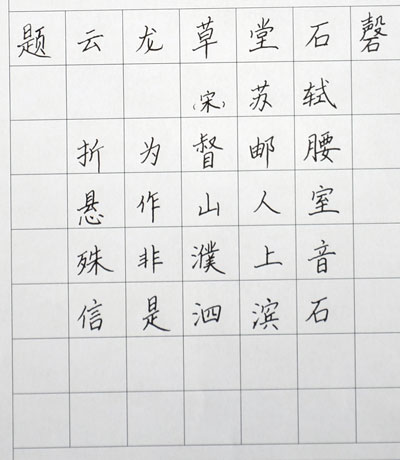 题云龙草堂石磬
(宋)苏轼
折为督邮腰
悬作山人室
殊非濮上音
信是泗滨石